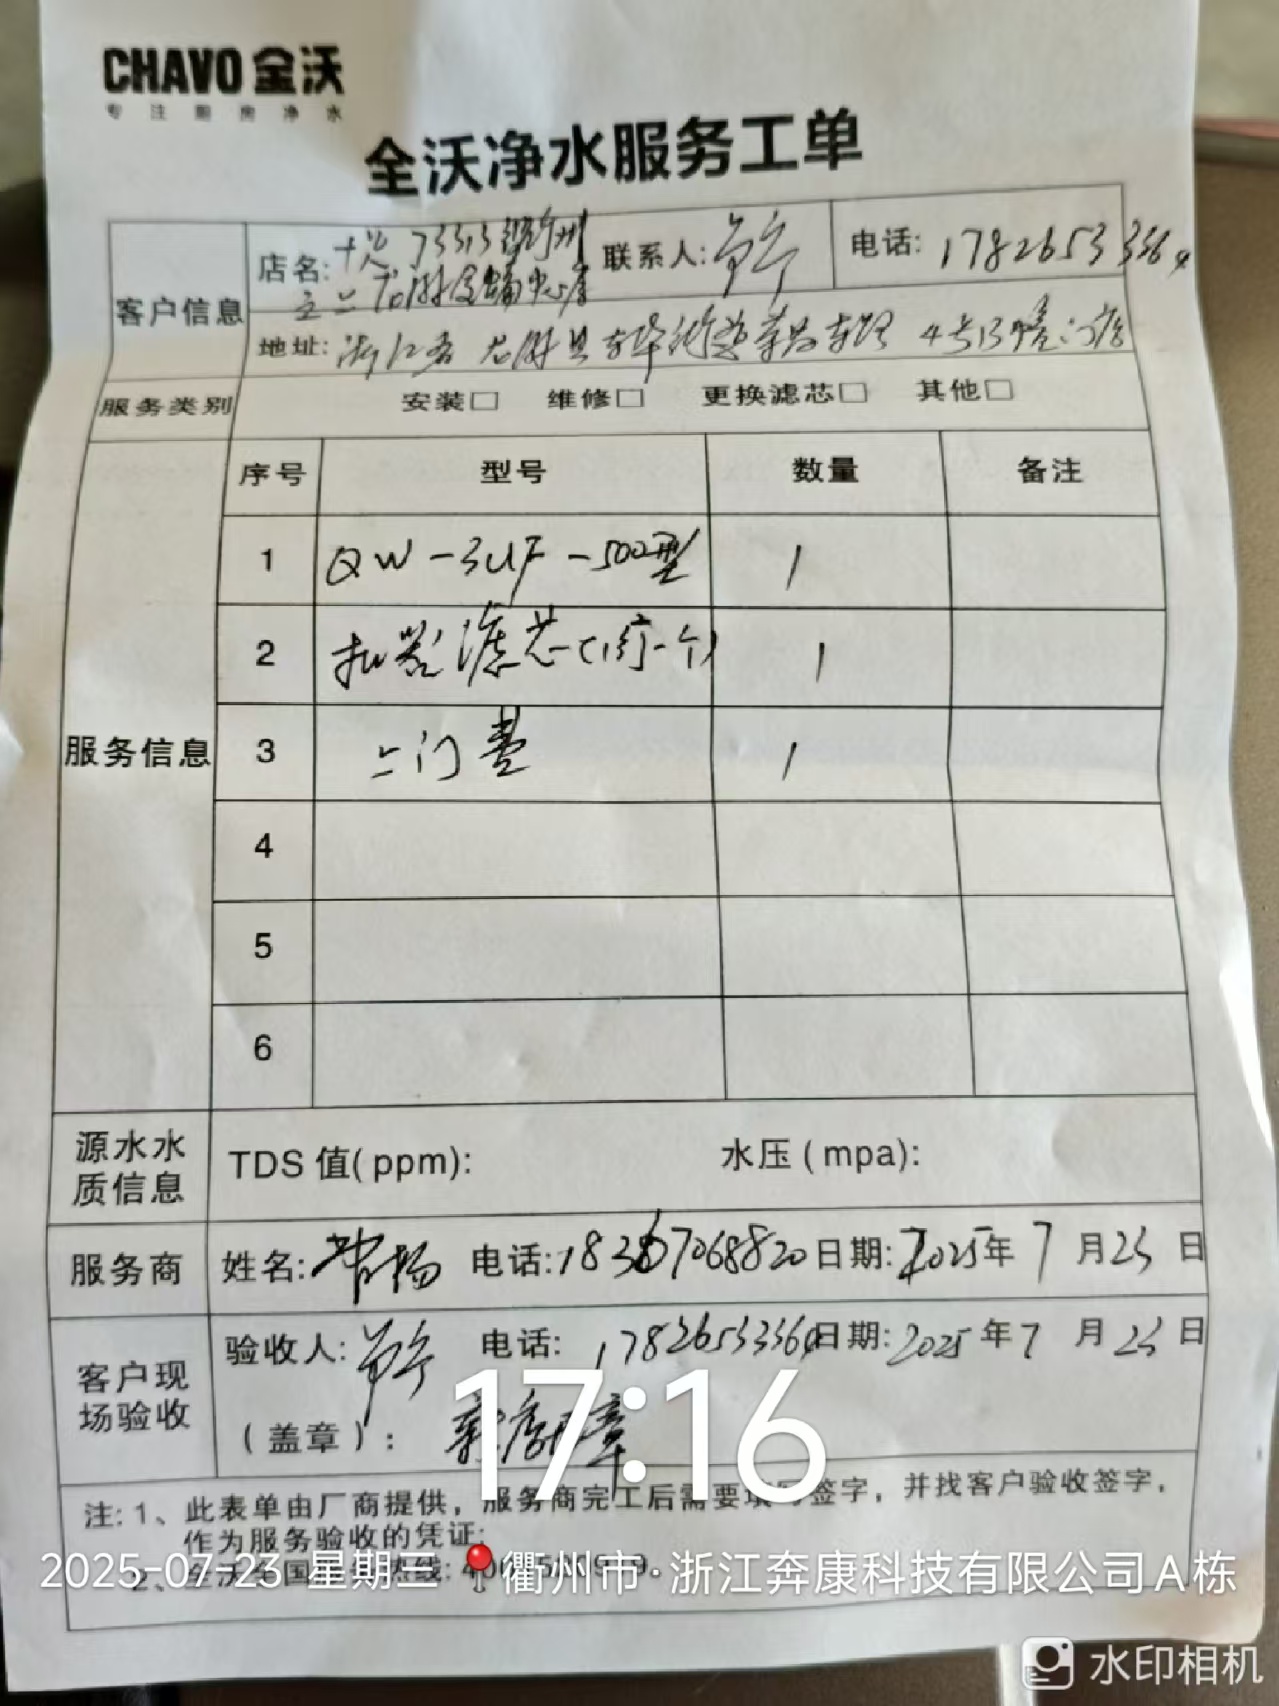 CHAVO 全沃
专注厨房净水
全沃净水服务工单
客户信息
店名:
联系人:
电话: 17826533364
地址: 浙江省 4号13幢 门店
服务类别
安装□ 维修□ 更换滤芯□ 其他□
服务信息
序号 型号 数量 备注
1 QW-3UF-500型 1
2 滤芯 1
3 上门费 1
4
5
6
源水水质信息
TDS 值(ppm): 水压(mpa):
服务商
姓名: 电话:18367068820 日期: 2025年 7 月 23 日
客户现场验收
验收人: 电话: 17826533364 日期: 2025 年 7 月 23 日
(盖章):
17:16
注: 1、此表单由厂商提供,服务商完工后需要填写签字,并找客户验收签字,
作为服务验收的凭证;
2、全沃全国 热线:
2025-07-23 星期三 衢州市·浙江奔康科技有限公司A栋
水印相机